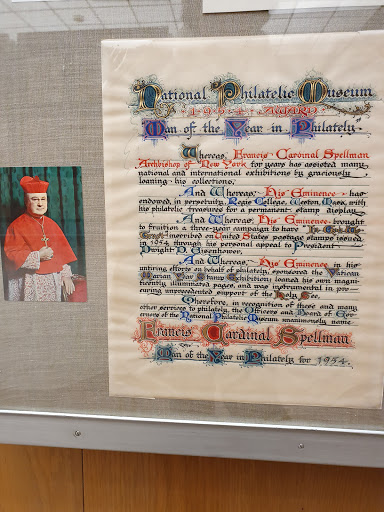 National Philatelic Museum
1954 AWARD
"Man of the Year in Philately"
Whereas, Francis Cardinal Spellman
Archbishop of New York for years has assisted many
national and international exhibitions by graciously
loaning his collections.
And Whereas, His Eminence has
endowed, in perpetuity, Regis College, Weston, Mass. with
his philatelic treasures for a permanent stamp display
And Whereas, His Eminence brought
to fruition a three-year campaign to have In God We
Trust inscribed on United States postage stamps issued
in 1954 through his personal appeal to President
Dwight D. Eisenhower,
And Whereas, His Eminence in his
untiring efforts on behalf of philately, sponsored the Vatican
Marian Year Stamp Exhibition, loaned his own magni-
ficently illuminated pages, and was instrumental in pro-
curing unprecedented support of the Holy See.
Therefore, in recognition of these and many
other services to philately, the Officers and Board of Gov-
ernors of the National Philatelic Museum unanimously name
Francis Cardinal Spellman
Man of the Year in Philately for 1954.